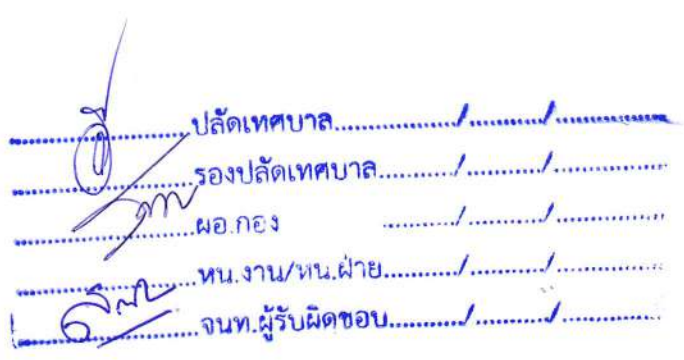 ..................ปลัดเทศบาล............/........../............
..................รองปลัดเทศบาล........../........../............
..................ผอ.กอง ............/........../............
..................หน.งาน/หน.ฝ่าย........../........../............
..................จนท.ผู้รับผิดชอบ........../........../............